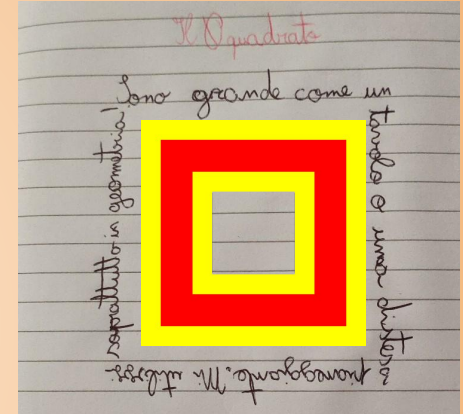 Il quadrato
Sono grande come un
tavolo o una distesa
pianeggiante. Mi utilizzi
soprattutto in geometria!